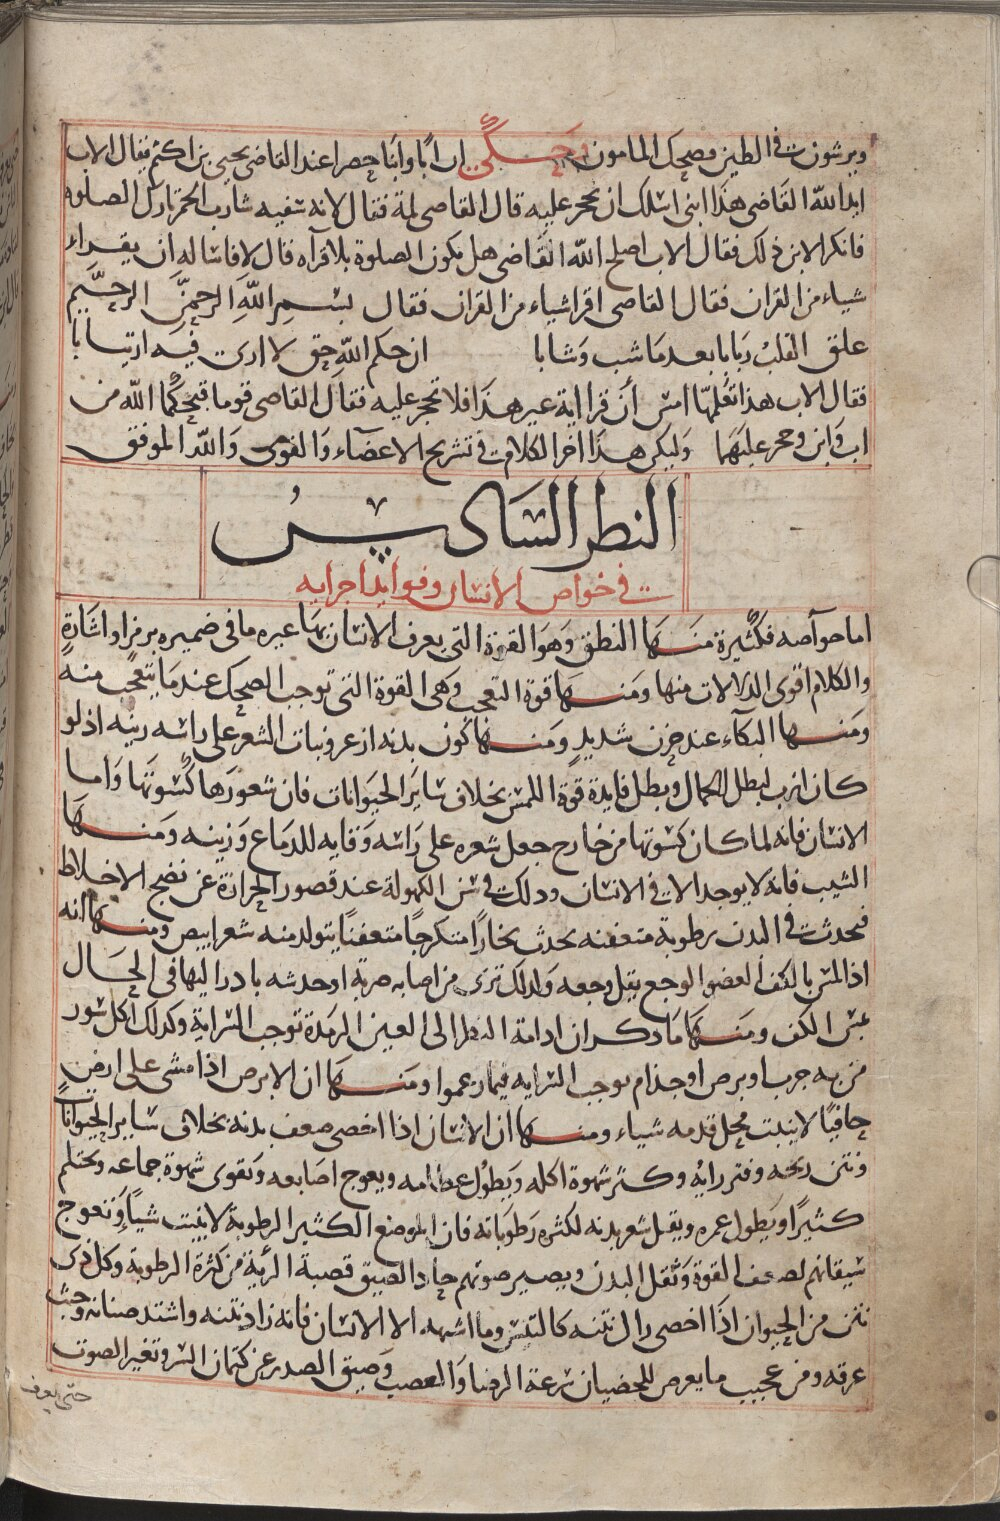 ويرشون في الطين وضحك المامون وحكي ان ابا وابنا حضرا عند القاضي يحيى بن اكثم فقال الاب
ايد الله القاضي هذا ابني اسلك ان تحجر عليه قال القاضي لمة فقال لانه سفيه شارب الخمر تارك الصلوة
فانكر الابن ذلك فقال الاب اصلح الله القاضي هل يكون الصلوة بلا قرآه قال لا فاساله ان يقراء
شياء من القران فقال القاضي اقرا شياء من القران فقال بسم الله الرحمن الرحيم
علق القلب ربابا بعد ما شب وشابا ان حكم الله حق لا ارى فيه ارتيابا
فقال الاب هذا تعلمها امس ان قرا اية غير هذا فلا تحجر عليه فقال القاضي قوما قبحكما الله من
اب وابن وحجر عليهما وليكن هذا اخر الكلام في تشريح الاعضآء والقوى والله الموفق
النظر السادس
في خواص الانسان وفوايد اجزايه
اما خوآصه فكثيرة منها النطق وهو القوة التي يعرف الانسان بها غيره ما في ضميره برمز او اشارة
والكلام اقوى الدلالات منها ومنها قوة التعجب وهي القوة التي توجب الضحك عند ما يتعجب منه
ومنها البكآء عند حزن شديد ومنها كون بدنه ازعر ونبات الشعر على راسه زينه اذ لو
كان ازب لبطل الجمال وبطل فايدة قوة اللمس بخلاف ساير الحيوانات فان شعورها كسوتها واما
الانسان فانه لما كان كسوتها من خارج جعل شعره على راسه وقايه للدماغ وزينه ومنها
الشيب فانه لا يوجد الا في الانسان وذلك في سن الكهولة عند قصور الحرارة عن نضج الاخلاط
فيحدث في البدن رطوبة متعفنه يحدث بخارا متكرجا متعفنا يتولد منه شعر ابيض ومنها انه
اذا لمس بالكف العضو الوجع يقل وجعه ولذلك ترى من اصابه ضربة او خدشه بادر اليها في الحال
بمس الكف ومنها ما ذكر ان ادامة النظر الى العين الرمدة توجب السراية وكذلك اكل سور
من به جرب او برص او جذام يوجب السرايه فيما زعموا ومنها ان الابرص اذا مشى على ارض
حافيا لا ينبت محل قدمه شياء ومنها ان الانسان اذا اخصي ضعف بدنه بخلاف ساير الحيوانات
ونتن ريحه وفتر رايه وكثر شهوة اكله ويطول عظامه ويعوج اصابعه وتقوى شهوة جماعه ويحتلم
كثيرا ويطول عمره ويقل شعر بدنه لكثره رطوباته فان الموضع الكثير الرطوبة لا ينبت شيا وتعوج
سيقانهم لضعف القوة وثقل البدن ويصير صوتهم حادا لضيق قصبة الرئية من كثرة الرطوبة وكل ذي
نتن من الحيوان اذا اخصي زال نتنه كالتيس وما اشبهه الا الانسان فانه زاد نتنه واشتد صنانه وخبث
عرقه ومن عجيب ما يعرض للخصيان سرعة الرضا والغضب وضيق الصدر عن كتمان السر وتغير الصوت
حتى يعرف